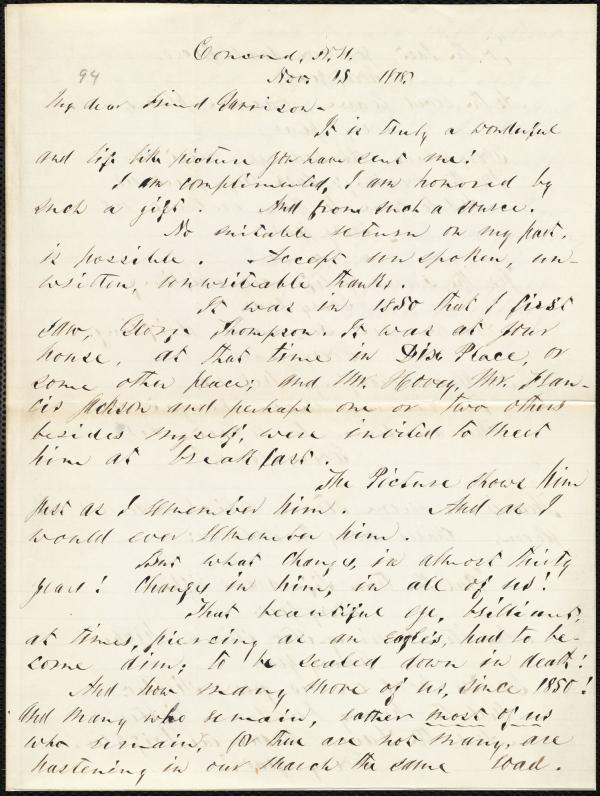 94
Concord, N.H.
Nov. 18 1878.
My dear Friend Garrison -
It is truly a wonderful
and life like picture you have sent me!
I am complimented, I am honored by
such a gift. And from such a source.
No suitable return on my part,
is possible. Accept unspoken, un-
written, unwriteable thanks.
It was in 1850 that I first
saw, George Thompson. It was at your
house, at that time in Dix Place, or
some other place; and Mr. Hovey, Mr. Fran-
cis Jackson and perhaps one or two others
besides myself, were invited to meet
him at breakfast.
The Picture shows him
just as I remember him. And as I
would ever remember him.
But what changes, in almost thirty
years! Changes in him, in all of us!
That beautiful eye, brilliant,
at times, piercing as an eagle's, had to be-
come dim, to be sealed down in death!
And how many more of us, since 1850!
And many who remain, rather most of us
who remain, for there are not many, are
hastening in our march the same road.